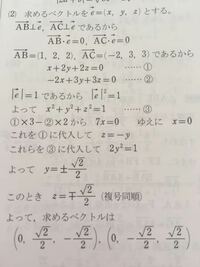 (2) 求めるベクトルを e⃗=(x, y, z) とする。
AB⃗⊥e⃗, AC⃗⊥e⃗ であるから
AB⃗・e⃗=0, AC⃗・e⃗=0
AB⃗=(1, 2, 2), AC⃗=(-2, 3, 3) であるから
x+2y+2z=0 ……①
-2x+3y+3z=0 ……②
|e⃗|=1 であるから |e⃗|²=1
よって x²+y²+z²=1 ……③
①×3-②×2 から 7x=0 ゆえに x=0
これを①に代入して z=-y
これらを③に代入して 2y²=1
よって y=±√2/2
このとき z=∓√2/2 (複号同順)
よって, 求めるベクトルは
(0, √2/2, -√2/2), (0, -√2/2, √2/2)